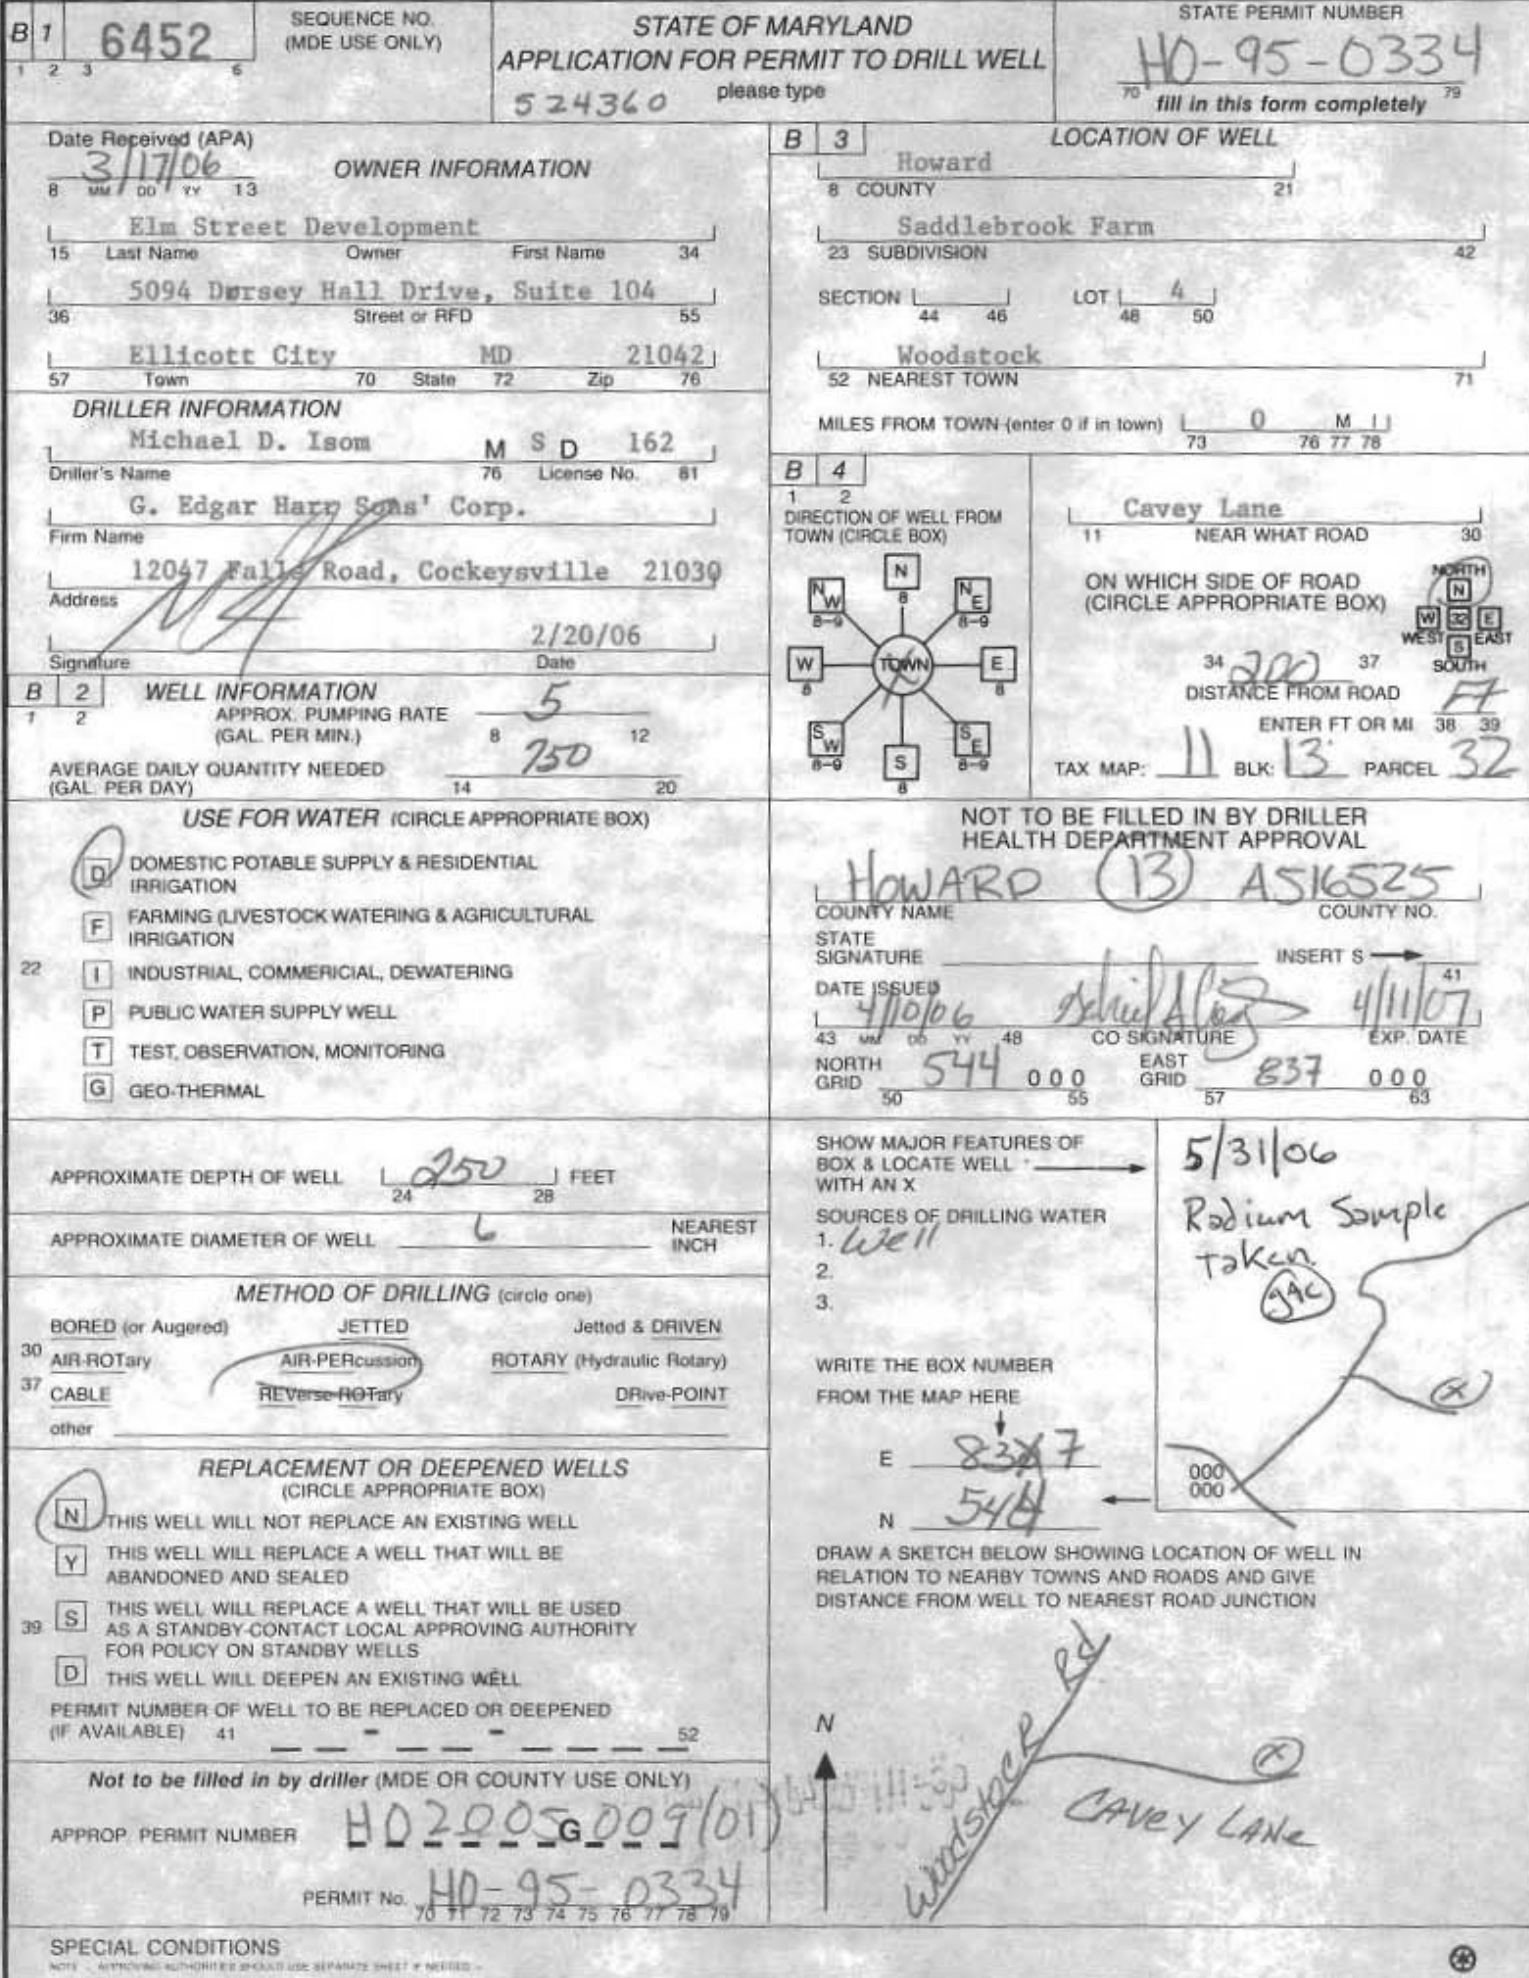 B 1
6452
1 2 3 6
SEQUENCE NO.
(MDE USE ONLY)
STATE OF MARYLAND
APPLICATION FOR PERMIT TO DRILL WELL
524360 please type
STATE PERMIT NUMBER
HO-95-0334
70 79
fill in this form completely
Date Received (APA)
3/17/06
8 MM DD YY 13
OWNER INFORMATION
Elm Street Development
15 Last Name Owner First Name 34
5094 Dorsey Hall Drive, Suite 104
36 Street or RFD 55
Ellicott City MD 21042
57 Town 70 State 72 Zip 76
DRILLER INFORMATION
Michael D. Isom M S D 162
Driller's Name 76 License No. 81
G. Edgar Harr Sons' Corp.
Firm Name
12047 Falls Road, Cockeysville 21030
Address
2/20/06
Signature Date
B 2
1 2
WELL INFORMATION
APPROX. PUMPING RATE 5
(GAL. PER MIN.) 8 12
AVERAGE DAILY QUANTITY NEEDED 750
(GAL. PER DAY) 14 20
USE FOR WATER (CIRCLE APPROPRIATE BOX)
D DOMESTIC POTABLE SUPPLY & RESIDENTIAL
IRRIGATION
F FARMING (LIVESTOCK WATERING & AGRICULTURAL
IRRIGATION
22 I INDUSTRIAL, COMMERICIAL, DEWATERING
P PUBLIC WATER SUPPLY WELL
T TEST, OBSERVATION, MONITORING
G GEO-THERMAL
APPROXIMATE DEPTH OF WELL 250 FEET
24 28
APPROXIMATE DIAMETER OF WELL 6 NEAREST
INCH
METHOD OF DRILLING (circle one)
BORED (or Augered) JETTED Jetted & DRIVEN
30 AIR-ROTary AIR-PERcussion ROTARY (Hydraulic Rotary)
37 CABLE REVerse-ROTary DRive-POINT
other
REPLACEMENT OR DEEPENED WELLS
(CIRCLE APPROPRIATE BOX)
N THIS WELL WILL NOT REPLACE AN EXISTING WELL
Y THIS WELL WILL REPLACE A WELL THAT WILL BE
ABANDONED AND SEALED
39 S THIS WELL WILL REPLACE A WELL THAT WILL BE USED
AS A STANDBY-CONTACT LOCAL APPROVING AUTHORITY
FOR POLICY ON STANDBY WELLS
D THIS WELL WILL DEEPEN AN EXISTING WELL
PERMIT NUMBER OF WELL TO BE REPLACED OR DEEPENED
(IF AVAILABLE) 41 - - 52
Not to be filled in by driller (MDE OR COUNTY USE ONLY)
APPROP. PERMIT NUMBER HO2005G009(01)
PERMIT No. HO-95-0334
70 71 72 73 74 75 76 77 78 79
SPECIAL CONDITIONS
NOTE - APPROVING AUTHORITIES SHOULD USE SEPARATE SHEET IF NEEDED -
B 3
LOCATION OF WELL
Howard
8 COUNTY 21
Saddlebrook Farm
23 SUBDIVISION 42
SECTION LOT 4
44 46 48 50
Woodstock
52 NEAREST TOWN 71
MILES FROM TOWN (enter 0 if in town) 0 M I
73 76 77 78
B 4
1 2
DIRECTION OF WELL FROM
TOWN (CIRCLE BOX)
N
8
NW NE
8-9 8-9
W TOWN E
8 8
SW SE
8-9 8-9
S
8
Cavey Lane
11 NEAR WHAT ROAD 30
ON WHICH SIDE OF ROAD
(CIRCLE APPROPRIATE BOX)
NORTH
N
W 32 E
WEST EAST
S
SOUTH
34 200 37
DISTANCE FROM ROAD FT
ENTER FT OR MI 38 39
TAX MAP: 11 BLK: 13 PARCEL 32
NOT TO BE FILLED IN BY DRILLER
HEALTH DEPARTMENT APPROVAL
HOWARD (13) A516525
COUNTY NAME COUNTY NO.
STATE
SIGNATURE INSERT S
41
DATE ISSUED
4/10/06 4/11/07
43 MM DD YY 48 CO SIGNATURE EXP. DATE
NORTH
GRID 544 000
50 55
EAST
GRID 837 000
57 63
SHOW MAJOR FEATURES OF
BOX & LOCATE WELL
WITH AN X
SOURCES OF DRILLING WATER
1. Well
2.
3.
WRITE THE BOX NUMBER
FROM THE MAP HERE
E 837
N 544
5/31/06
Radium Sample
Taken
gac
X
000
000
DRAW A SKETCH BELOW SHOWING LOCATION OF WELL IN
RELATION TO NEARBY TOWNS AND ROADS AND GIVE
DISTANCE FROM WELL TO NEAREST ROAD JUNCTION
N
Woodstock Rd
X
CAVEY LANE